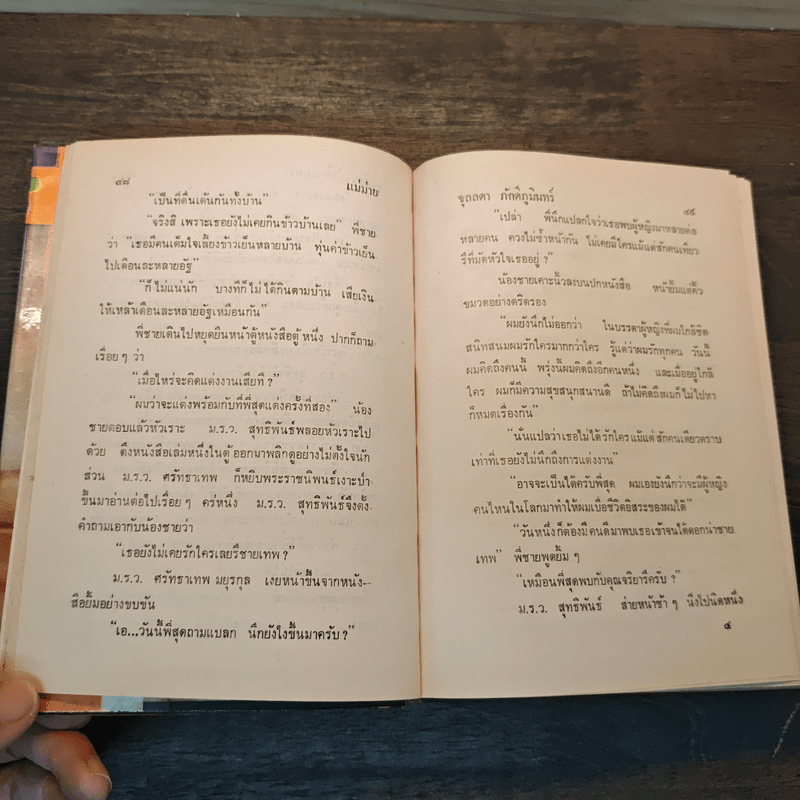 ๔๘
แม่ม่าย
“เป็นที่ตื่นเต้นกันทั้งบ้าน”
“จริงสิ เพราะเธอยังไม่เคยกินข้าวบ้านเลย” พี่ชาย
ว่า “เธอมีคนเต็มใจเลี้ยงข้าวเย็นหลายบ้าน ทุ่นค่าข้าวเย็น
ไปเดือนละหลายอัฐ”
“ก็ไม่แน่นัก บางทีก็ไม่ได้กินตามบ้าน เสียเงิน
ให้เหล้าเดือนละหลายอัฐเหมือนกัน”
พี่ชายเดินไปหยุดยืนหน้าตู้หนังสือตู้หนึ่ง ปากก็ถาม
เรื่อยๆ ว่า
“เมื่อไหร่จะคิดแต่งงานเสียที ?”
“ผมว่าจะแต่งพร้อมกับที่พี่สุดแต่งครั้งที่สอง” น้อง
ชายตอบแล้วหัวเราะ ม.ร.ว. สุทธิพันธ์พลอยหัวเราะไป
ด้วย ดึงหนังสือเล่มหนึ่งในตู้ออกมาพลิกดูอย่างไม่ตั้งใจนัก
ส่วน ม.ร.ว. ศรัทธาเทพ ก็หยิบพระราชนิพนธ์เงาะป่า
ขึ้นมาอ่านต่อไปเรื่อยๆ ครู่หนึ่ง ม.ร.ว. สุทธิพันธ์จึงตั้ง
คำถามเอากับน้องชายว่า
“เธอยังไม่เคยรักใครเลยรึชายเทพ ?”
ม.ร.ว. ศรัทธาเทพ มยุรกุล เงยหน้าขึ้นจากหนัง–
สือยิ้มอย่างขบขัน
“เอ...วันนี้พี่สุดถามแปลก นึกยังไงขึ้นมาครับ ?”
จุลลดา ภักดีภูมินทร์
๔๙
“เปล่า พี่นึกแปลกใจว่าเธอพบผู้หญิงมาหลายต่อ
หลายคน ควงไม่ซ้ำหน้ากัน ไม่เคยมีใครแม้แต่สักคนเดียว
รึที่มัดหัวใจเธออยู่ ?”
น้องชายเคาะนิ้วลงบนปกหนังสือ หน้ายิ้มแต่คิ้ว
ขมวดอย่างตริตรอง
“ผมยังนึกไม่ออกว่า ในบรรดาผู้หญิงที่ผมใกล้ชิด
สนิทสนมผมรักใครมากกว่าใคร รู้แต่ว่าผมรักทุกคน วันนี้
ผมคิดถึงคนนี้ พรุ่งนี้ผมคิดถึงอีกคนหนึ่ง และเมื่ออยู่ใกล้
ใคร ผมก็มีความสุขสนุกสนานดี ถ้าไม่คิดถึงผมก็ไม่ไปหา
ก็หมดเรื่องกัน”
“นั่นแปลว่าเธอไม่ได้รักใครแม้แต่สักคนเดียวตราบ
เท่าที่เธอยังไม่นึกถึงการแต่งงาน”
“อาจจะเป็นได้ครับพี่สุด ผมเองยังนึกว่าจะมีผู้หญิง
คนไหนในโลกมาทำให้ผมเบื่อชีวิตอิสระของผมได้”
“วันหนึ่งก็ต้องมีคนดีมาพบเธอเข้าจนได้ดอกน่าชาย
เทพ” พี่ชายพูดยิ้มๆ
“เหมือนพี่สุดพบกับคุณจริยารึครับ ?”
ม.ร.ว. สุทธิพันธ์ ส่ายหน้าช้าๆ นิ่งไปนิดหนึ่ง
๔